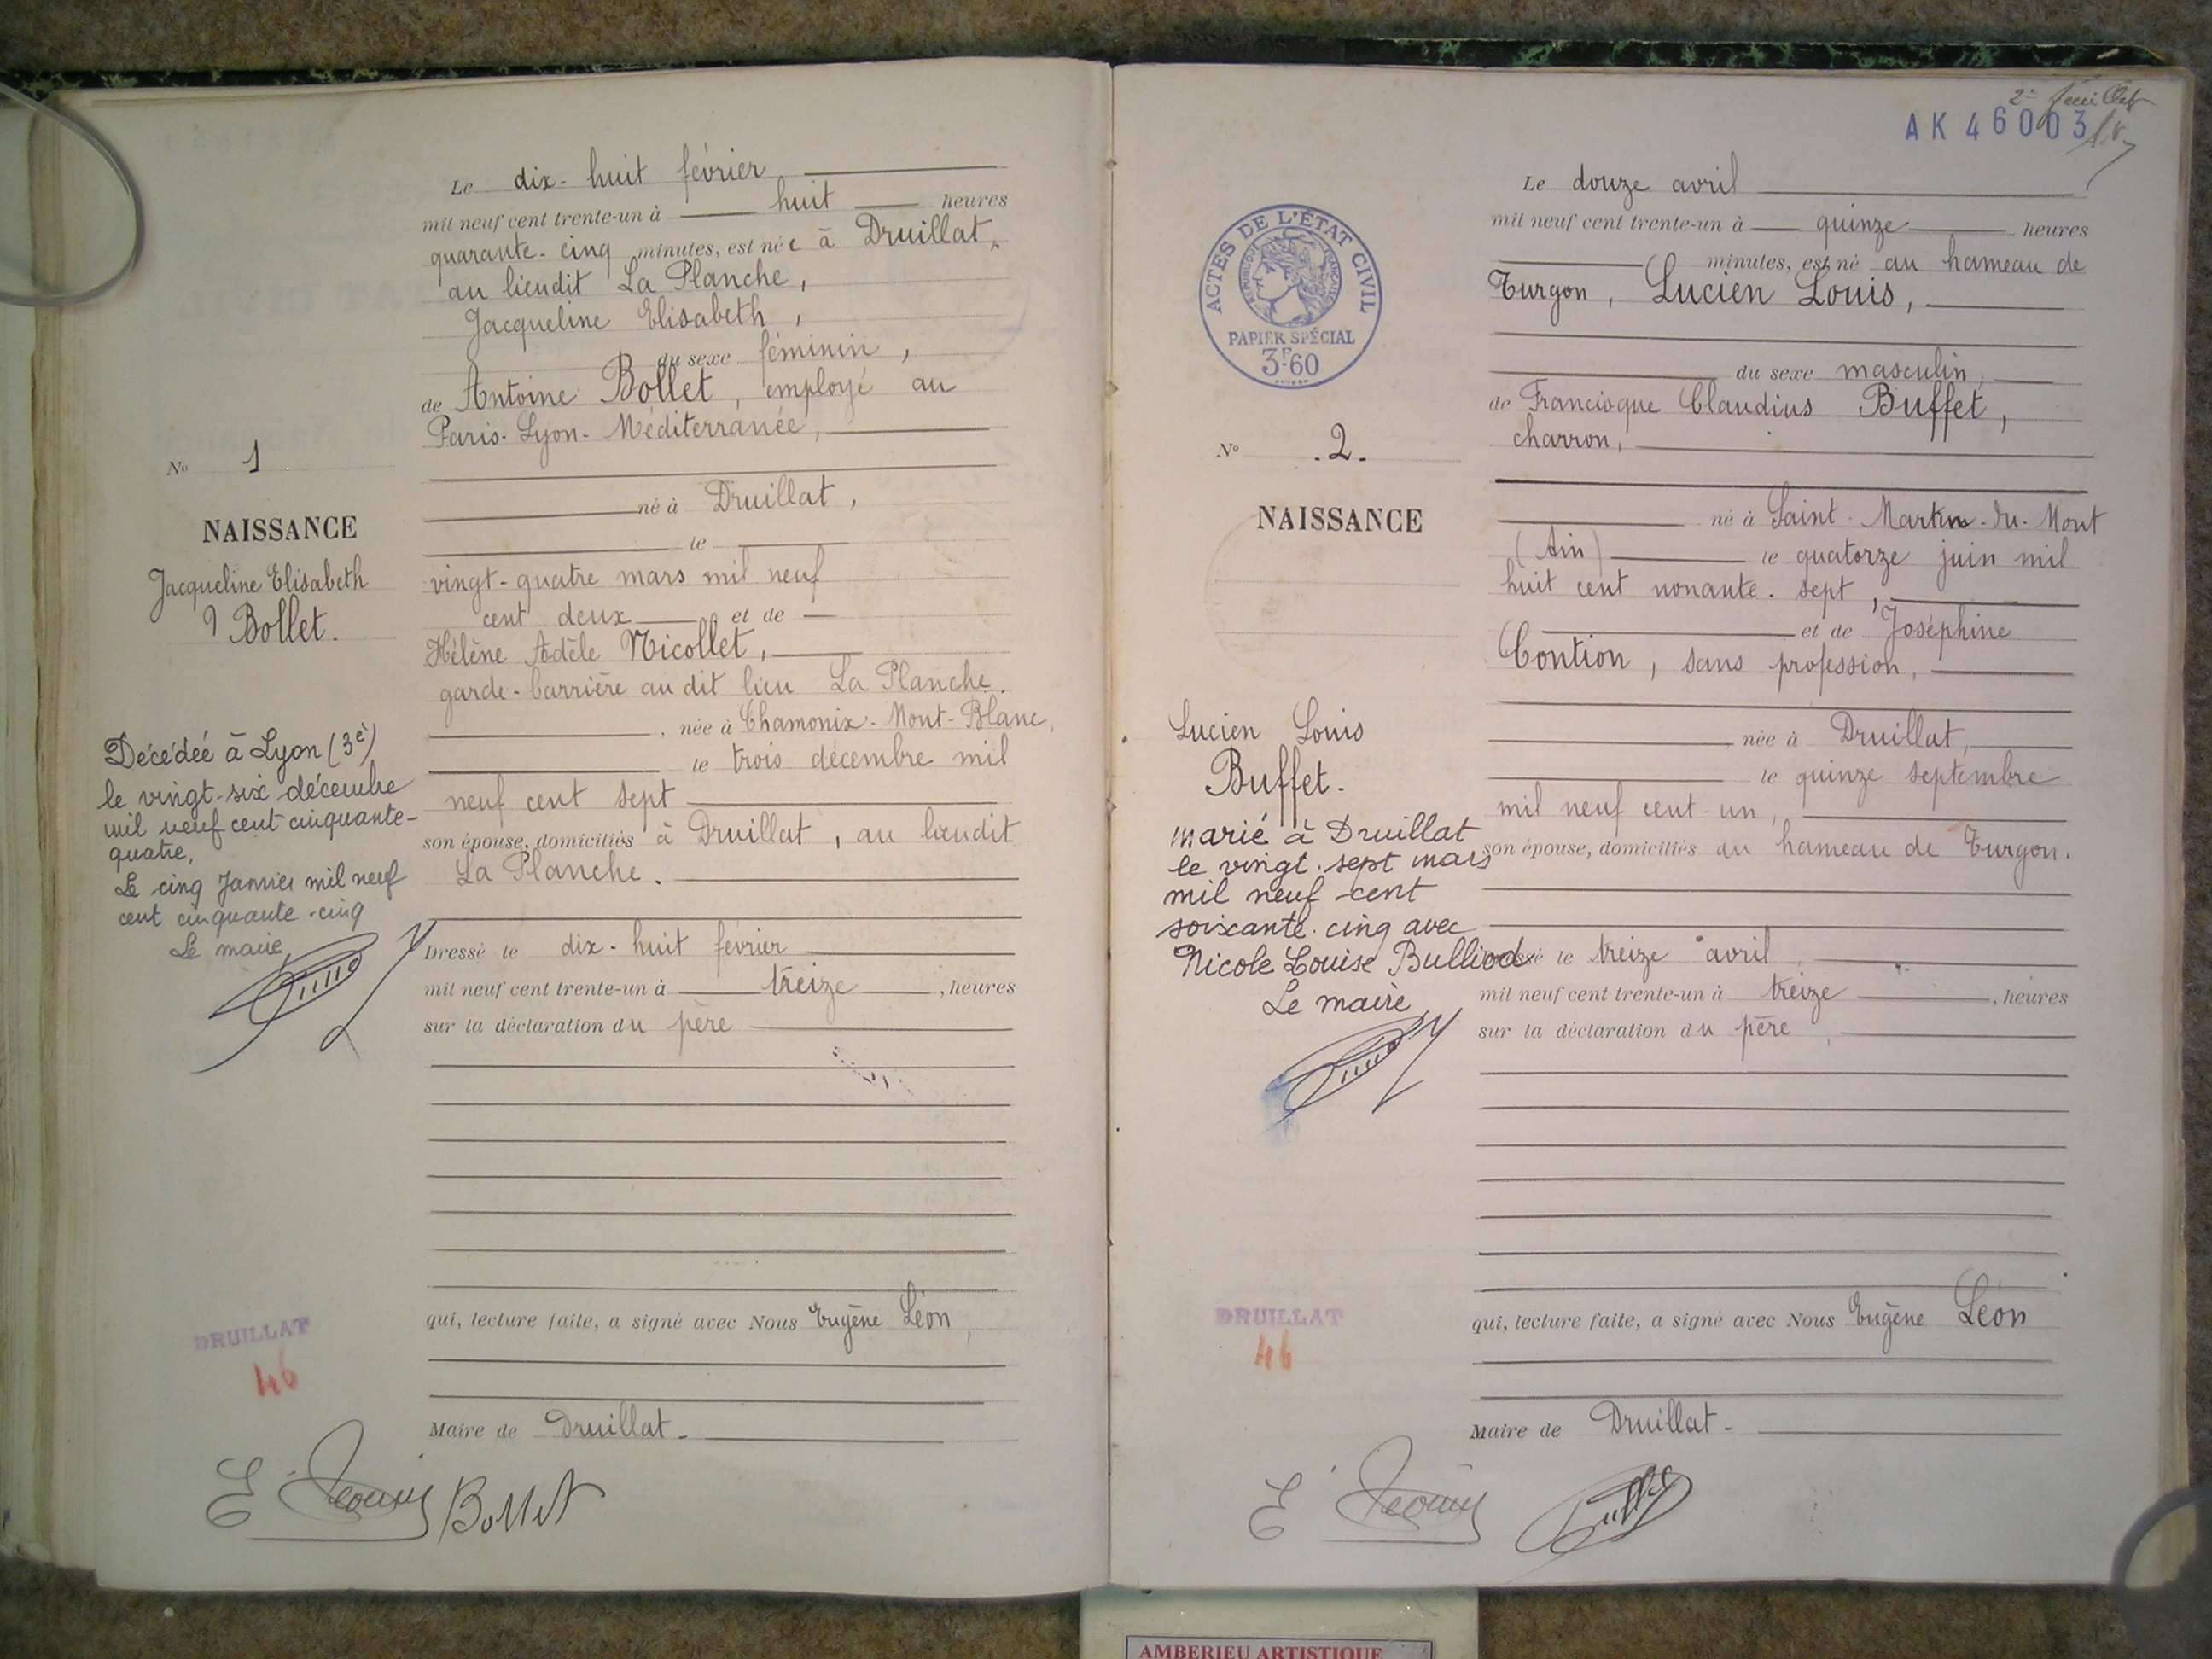 Le dix-huit février
mil neuf cent trente-un à huit heures
quarante-cinq minutes, est née à Druillat,
au lieudit La Planche,
Jacqueline Elisabeth,
du sexe féminin,
de Antoine Bollet, employé au
Paris-Lyon-Méditerranée,
né à Druillat,
le
vingt-quatre mars mil neuf
cent deux et de
Hélène Adèle Nicollet,
garde-barrière au dit lieu La Planche.
, née à Chamonix-Mont-Blanc,
le trois décembre mil
neuf cent sept
son épouse, domiciliés à Druillat, au lieudit
La Planche.
Dressé le dix-huit février
mil neuf cent trente-un à treize, heures
sur la déclaration du père
qui, lecture faite, a signé avec Nous Eugène Léon,
Maire de Druillat.
No 1
NAISSANCE
Jacqueline Elisabeth
Bollet.
Décédée à Lyon (3e)
le vingt-six décembre
mil neuf cent cinquante-
quatre,
Le cinq Janvier mil neuf
cent cinquante-cinq
Le maire,
DRUILLAT
46
Bollet
2e feuillet
AK 46003
Le douze avril
mil neuf cent trente-un à quinze heures
minutes, est né au hameau de
Turgon, Lucien Louis,
du sexe masculin,
de Francisque Claudius Buffet,
charron,
né à Saint-Martin-du-Mont
(Ain) le quatorze juin mil
huit cent nonante-sept,
et de Joséphine
Contion, sans profession,
née à Druillat,
le quinze septembre
mil neuf cent un,
son épouse, domiciliés au hameau de Turgon.
Dressé le treize avril
mil neuf cent trente-un à treize, heures
sur la déclaration du père,
qui, lecture faite, a signé avec Nous Eugène Léon
Maire de Druillat.
ACTES DE L'ÉTAT CIVIL
RÉPUBLIQUE FRANÇAISE
PAPIER SPÉCIAL
3F60
No .2.
NAISSANCE
Lucien Louis
Buffet.
marié à Druillat
le vingt-sept mars
mil neuf cent
soixante-cinq avec
Nicole Louise Bulliod
Le maire
DRUILLAT
46
AMBERIEU ARTISTIQUE